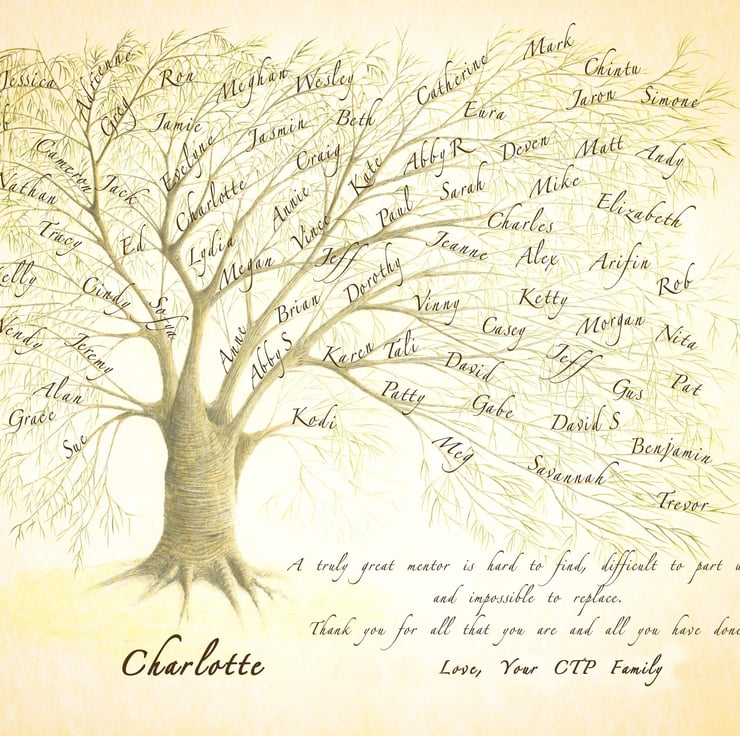 Jessica
Adrienne
Greg
Ron
Meghan
Wesley
Catherine
Mark
Chintu
Jaron
Simone
Jamie
Jasmin
Beth
Eura
Cameron
Evelyne
Craig
Kate
Abby R
Deven
Matt
Andy
Nathan
Jack
Charlotte
Annie
Paul
Sarah
Mike
Elizabeth
Tracy
Ed
Lydia
Vince
Charles
Megan
Jeff
Jeanne
Alex
Arifin
Rob
Cindy
Sofya
Dorothy
Brian
Vinny
Ketty
Casey
Morgan
Nita
Jeremy
Anne
Abby S
Karen
Tali
David
Jeff
Gus
Pat
Alan
Grace
Sue
Kodi
Patty
Gabe
David S
Benjamin
Meg
Savannah
Trevor
A truly great mentor is hard to find, difficult to part
and impossible to replace.
Thank you for all that you are and all you have done
Love, Your CTP Family
Charlotte